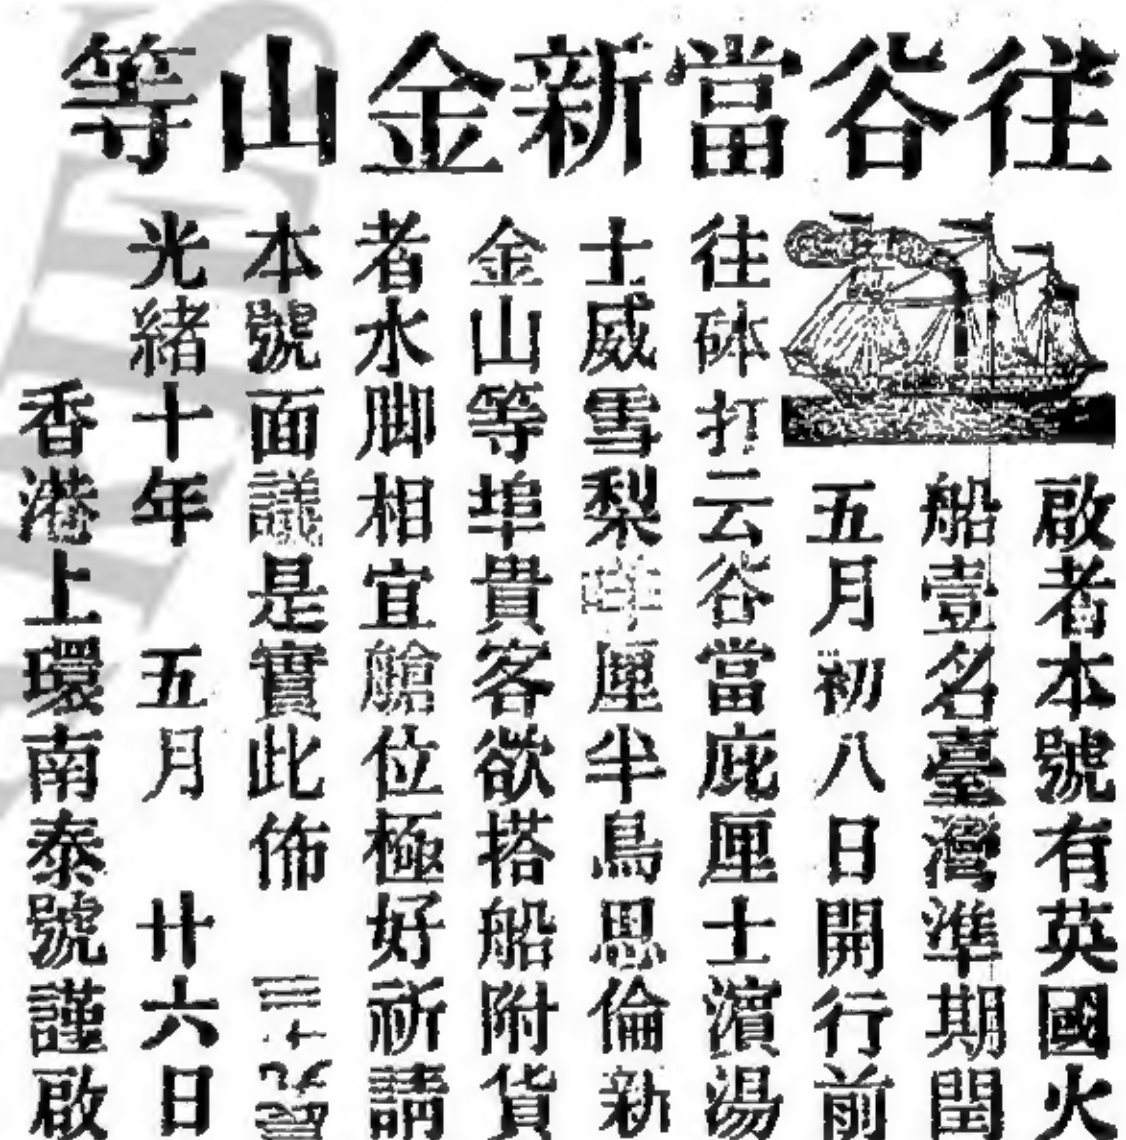 往谷當新金山等
啟者本號有英國火
船壹名臺灣準期閏
五月初八日開行前
往砵打云谷當庇厘士濱湯
士威雪梨咩厘半鳥思倫新
金山等埠貴客欲搭船附貨
者水脚相宜艙位極好祈請
本號面議是實此佈
光緒十年 五月 廿六日
香港上環南泰號謹啟